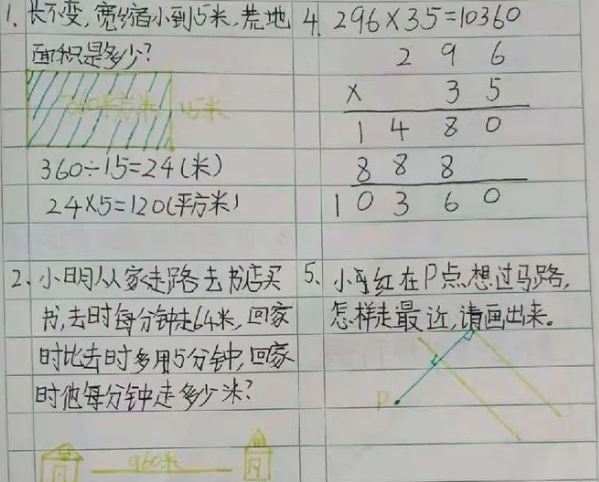 1. 长不变,宽缩小到5米,荒地
面积是多少?
360平方米 15米
360÷15=24(米)
24×5=120(平方米)
2. 小明从家走路去书店买
书,去时每分钟走64米,回家
时比去时多用5分钟,回家
时他每分钟走多少米?
960米
4. 296×35=10360
2 9 6
× 3 5
1 4 8 0
8 8 8
1 0 3 6 0
5. 小红在P点想过马路,
怎样走最近,请画出来。
P